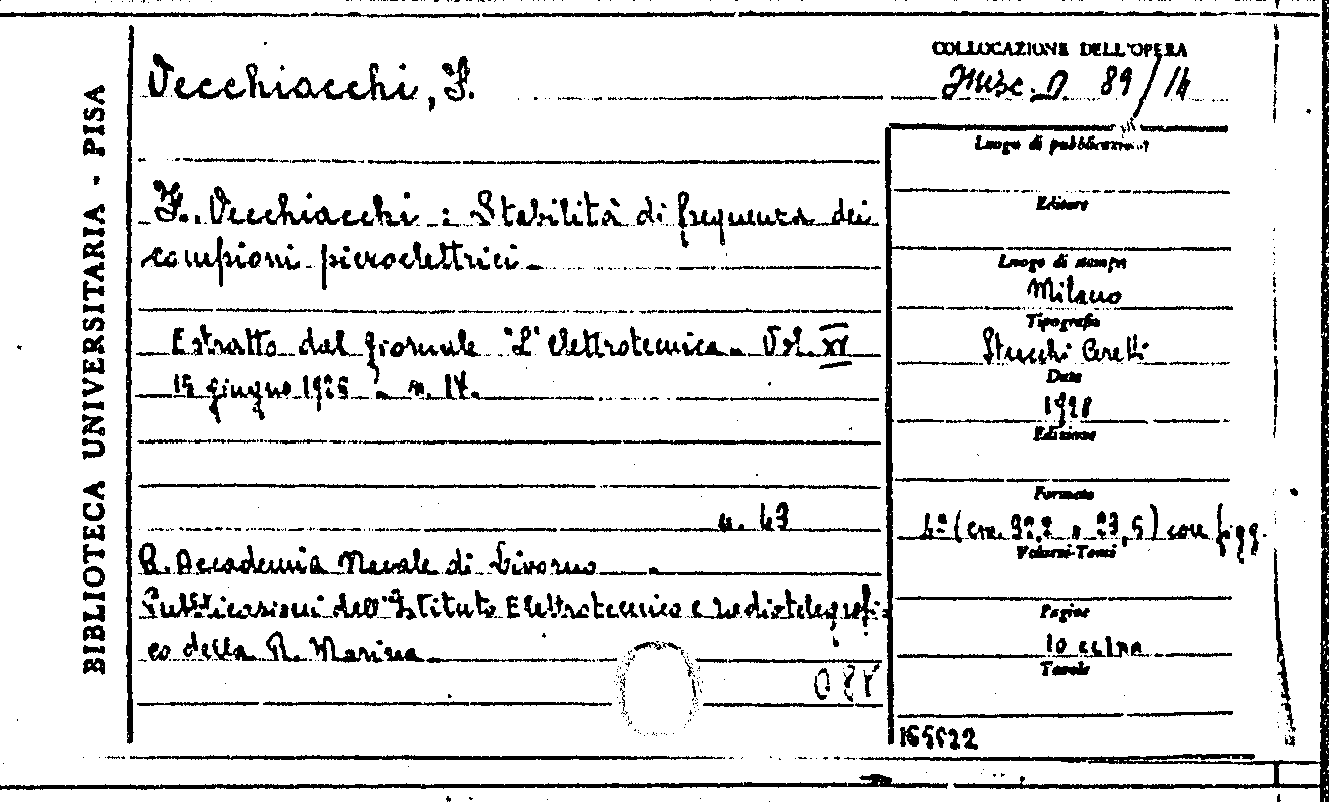 BIBLIOTECA UNIVERSITARIA - PISA
COLLOCAZIONE DELL'OPERA
Vecchiacchi, F.
Misc. D. 89/14
Luogo di pubblicazione
F. Vecchiacchi : Stabilità di frequenza dei
campioni piezoelettrici.
Editore
Luogo di stampa
Milano
Tipografia
Estratto dal giornale "L'Elettrotecnica. Vol. XV
Stucchi Ceretti
15 giugno 1928 . n. 17.
Data
1928
Edizione
Formato
n. 43
4° (cm. 32,2 x 23,5) con figg.
Volumi-Tomi
R. Accademia Navale di Livorno
Pubblicazioni dell'Istituto Elettrotecnico e radiotelegrafi-
co della R. Marina
Pagine
10
Tavole
165522